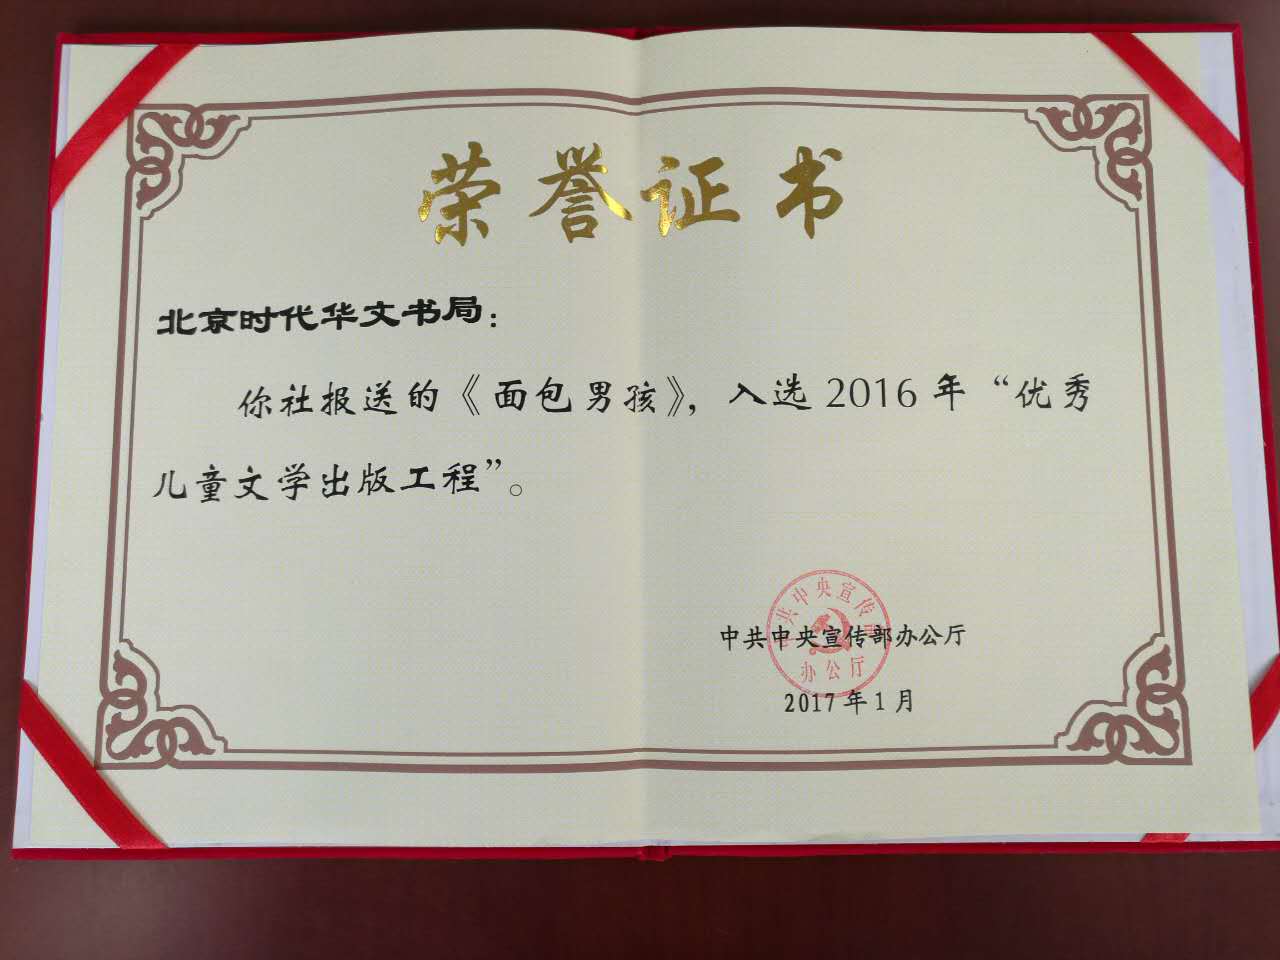 荣誉证书
北京时代华文书局：
你社报送的《面包男孩》，入选2016年“优秀
儿童文学出版工程”。
中共中央宣传部办公厅
中共中央宣传部
办公厅
2017年1月